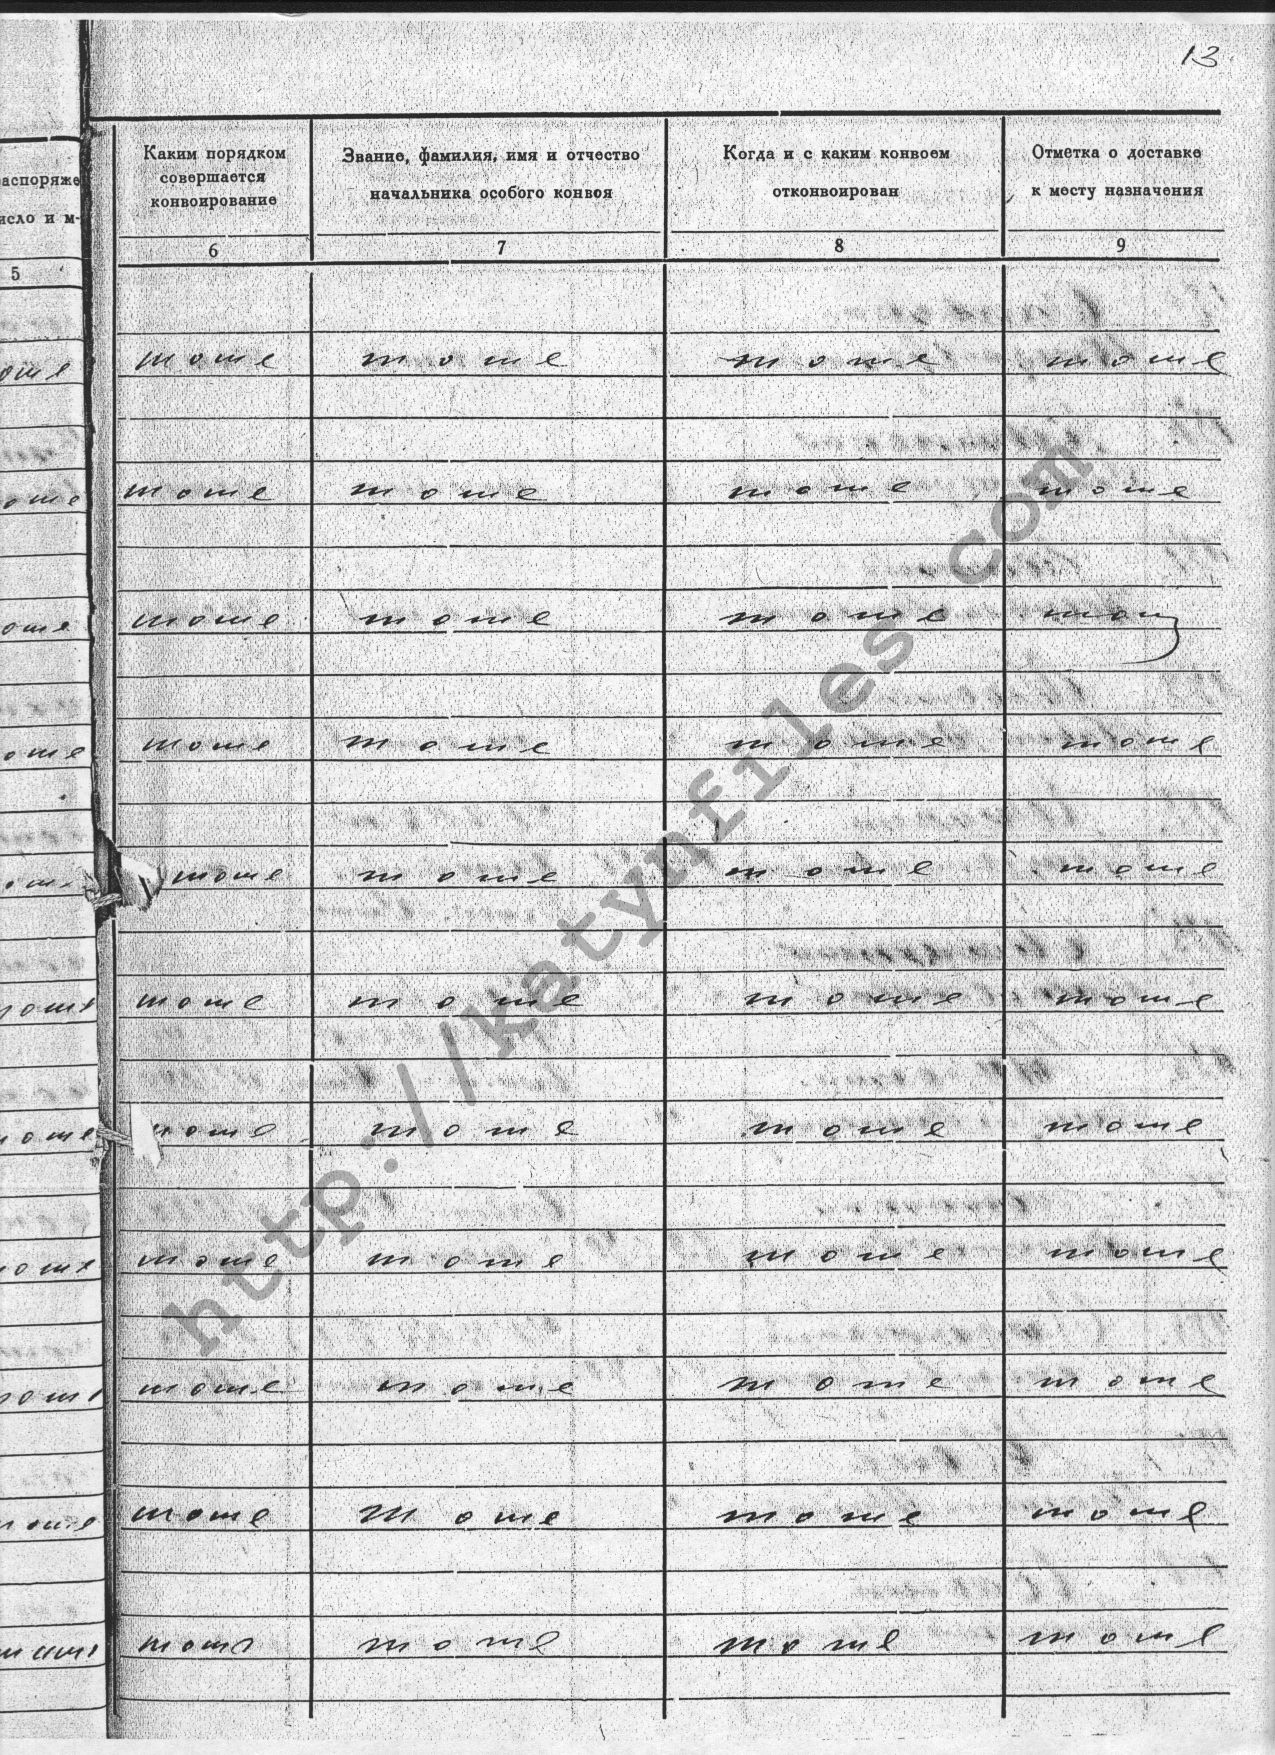 13
аспоряже
исло и м-
5
Каким порядком
совершается
конвоирование
6
Звание, фамилия, имя и отчество
начальника особого конвоя
7
Когда и с каким конвоем
отконвоирован
8
Отметка о доставке
к месту назначения
9
оте тоже тоже тоже тоже
оже тоже тоже тоже тоже
оже тоже тоже тоже тож
оже тоже тоже тоже тоже
тоже тоже тоже тоже
тоже тоже тоже тоже
тоже тоже тоже тоже тоже
тоже тоже тоже тоже тоже
тоже тоже тоже тоже
тоже тоже тоже тоже тоже
тоже тоже тоже тоже
http://katynfiles.com